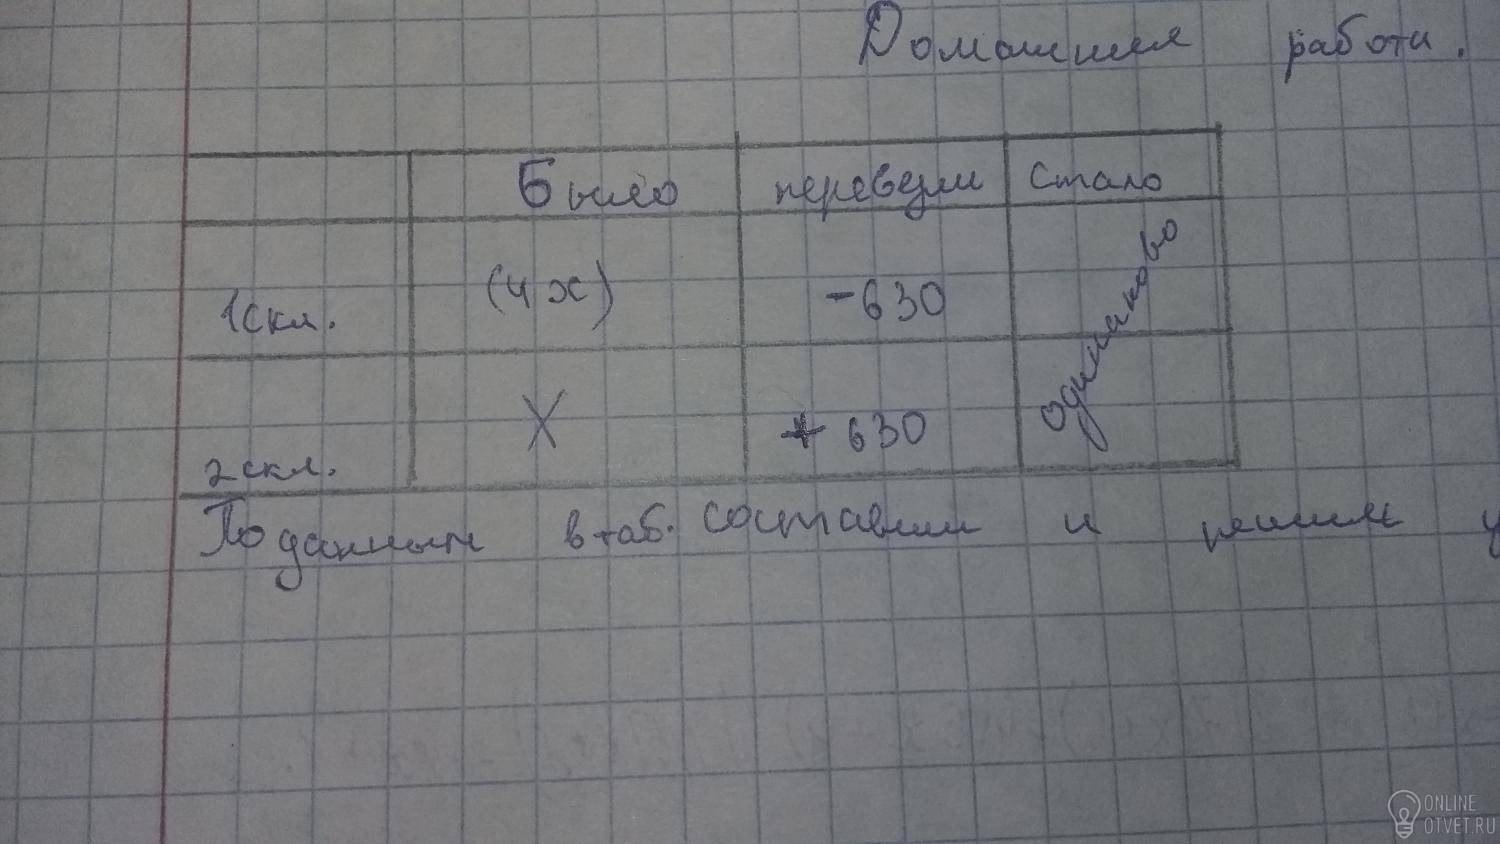 Домашняя работа.
Было перевезли стало
1 скл. (4x) -630 одинаково
2 скл. X + 630
По данным в таб. составим и решим у
ONLINE
OTVET.RU